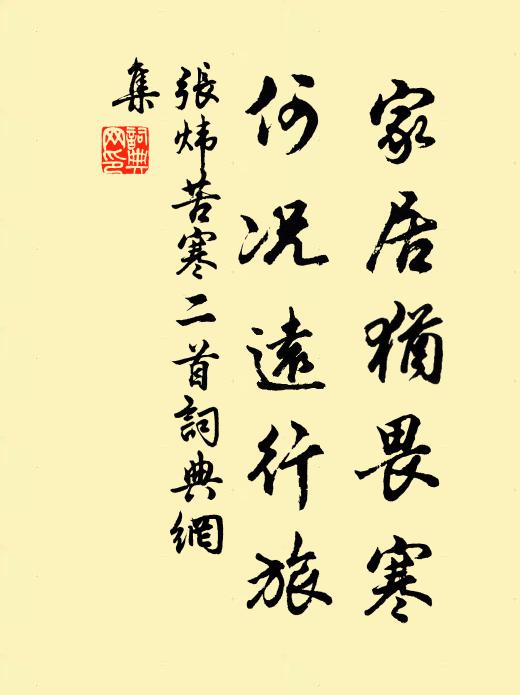 家居猶畏寒
何况遠行旅
張炜苦寒二首詞典網
集
詞典
网印